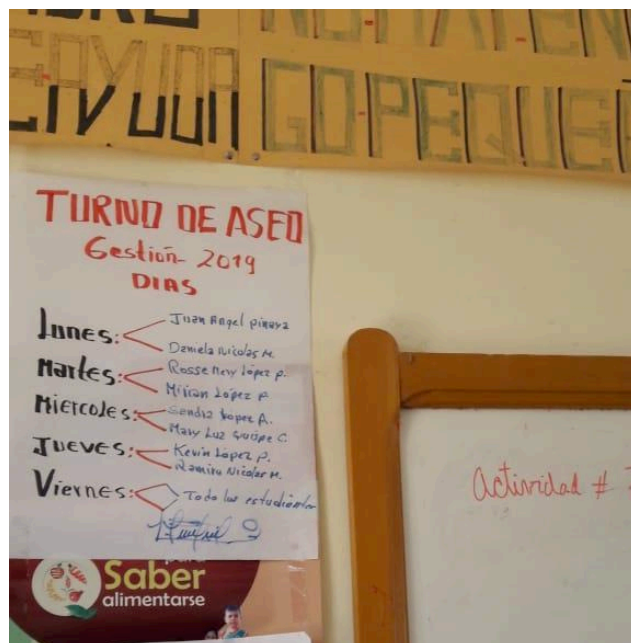 TURNO DE ASEO
Gestión- 2019
DIAS
Lunes:
Juan Angel pinaya
Daniela Nicolas M.
Martes:
Rosse Mery López p.
Mirian López P.
Miercoles:
Sandra López A.
Mary Luz Quispe C.
Jueves:
Kevin López P.
Ramiro Nicolas M.
Viernes:
Todo los estudiantes
Actividad #
para
Saber
alimentarse